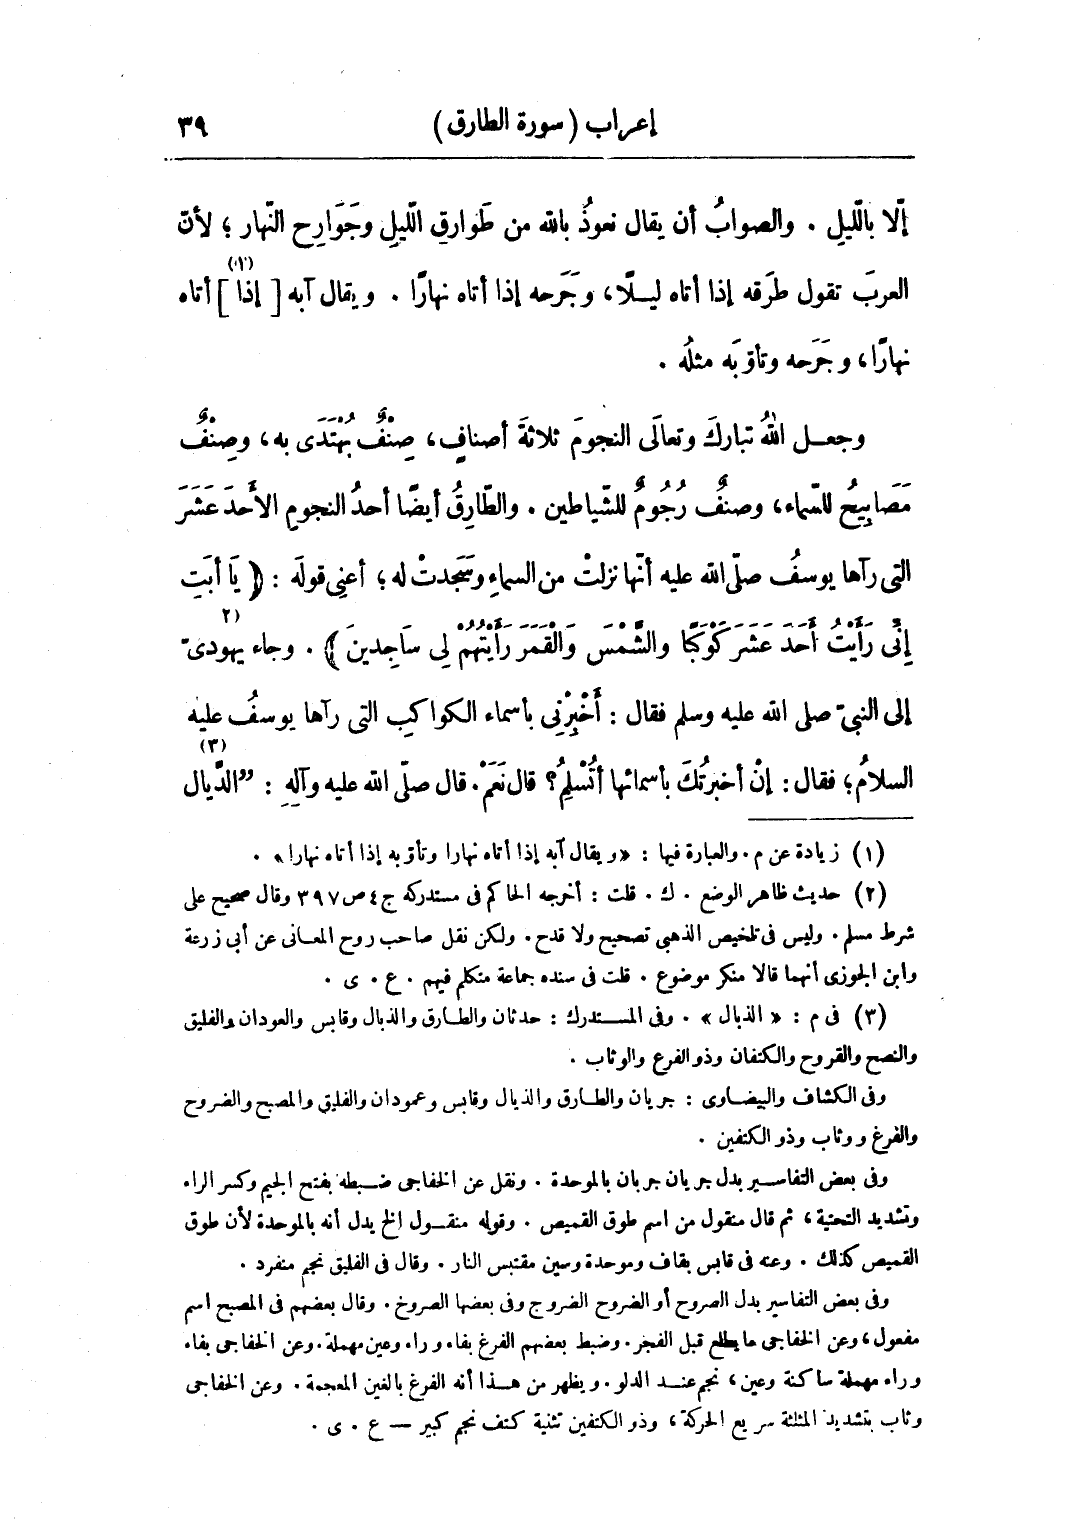 إعراب (سورة الطارق) ٣٩
إلّا بالّليلِ . والصوابُ أن يقال نعوذُ بالله من طَوارقِ الّليلِ وجَوَارِحِ النّهار ؛ لأنّ
العربَ تقول طرَقه إذا أتاه ليـلًا، وجَرَحه إذا أتاه نهارًا . ويقال آبه [إذا](١) أتاه
نهارًا، وجَرَحه وتأوّبَه مثلُه .
وجعـل اللهُ تباركَ وتعالَى النجومَ ثلاثةَ أصنافٍ، صِنْفٌ يُهْتَدَى به، وصِنْفٌ
مَصَابِيحُ للسّماء، وصنفٌ رُجُومٌ للشّياطين . والطّارِقُ أيضًا أحدُ النجومِ الأَحدَ عَشَرَ
التى رآها يوسفُ صلّى الله عليه أنّها نزلتْ من السماءِ وسَجَدتْ له؛ أعنِى قولَه : ﴿ يَا أَبَتِ
إِنِّى رَأَيْتُ أَحَدَ عَشَرَ كَوْكَبًا والشَّمْسَ وَالْقَمَرَ رَأَيْتُهُمْ لِى سَاجِدِينَ ﴾ . وجاء يهودىّ (٢
إلى النبىّ صلى الله عليه وسلم فقال : أَخْبِرْنِى بأسماء الكواكبِ التى رآها يوسفُ عليه
السلامُ؛ فقال : إنْ أخبرتُكَ بأسمائها أَتُسْلِمُ؟ قال نَعَمْ. قال صلّى الله عليه وآلِهِ : ”الذَّيال (٣)
(١) زيادة عن م. والعبارة فيها : «ويقال آبه إذا أتاه نهارا وتأوّبه إذا أتاه نهارا» .
(٢) حديث ظاهر الوضع . ك . قلت : أخرجه الحاكم فى مستدركه ج٤ ص٣٩٧ وقال صحيح على
شرط مسلم. وليس فى تلخيص الذهبى تصحيح ولا قدح. ولكن نقل صاحب روح المعـانى عن أبى زرعة
وابن الجوزى أنهما قالا منكر موضوع . قلت فى سنده جماعة متكلم فيهم . ع . ى .
(٣) فى م : « الذبال » . وفى المستدرك : حدثان والطارق والذبال وقابس والعودان والفليق
والنصح والقروح والكنفان وذو الفرع والوثاب .
وفى الكشاف والبيضاوى : جريان والطارق والذيال وقابس وعمودان والفليق والمصبح والضروح
والفرغ ووثاب وذو الكتفين .
وفى بعض التفاسير بدل جريان جربان بالموحدة . ونقل عن الخفاجى ضبطه بفتح الجيم وكسر الراء
وتشديد التحتية، ثم قال منقول من اسم طوق القميص . وقوله منقول الخ يدل أنه بالموحدة لأن طوق
القميص كذلك . وعنه فى قابس بقاف وموحدة وسين مقتبس النار . وقال فى الفليق نجم منفرد .
وفى بعض التفاسير بدل الصروح أو الضروح الضروج وفى بعضها الصروخ . وقال بعضهم فى المصبح اسم
مفعول، وعن الخفاجى ما يطلع قبل الفجر. وضبط بعضهم الفرغ بفاء وراء وعين مهملة. وعن الخفاجى بفاء
وراء مهملة ساكنة وعين، نجم عند الدلو. ويظهر من هذا أنه الفرغ بالغين المعجمة . وعن الخفاجى
وثاب بتشديد المثلثة سريع الحركة، وذو الكتفين تثنية كتف نجم كبير — ع . ى .